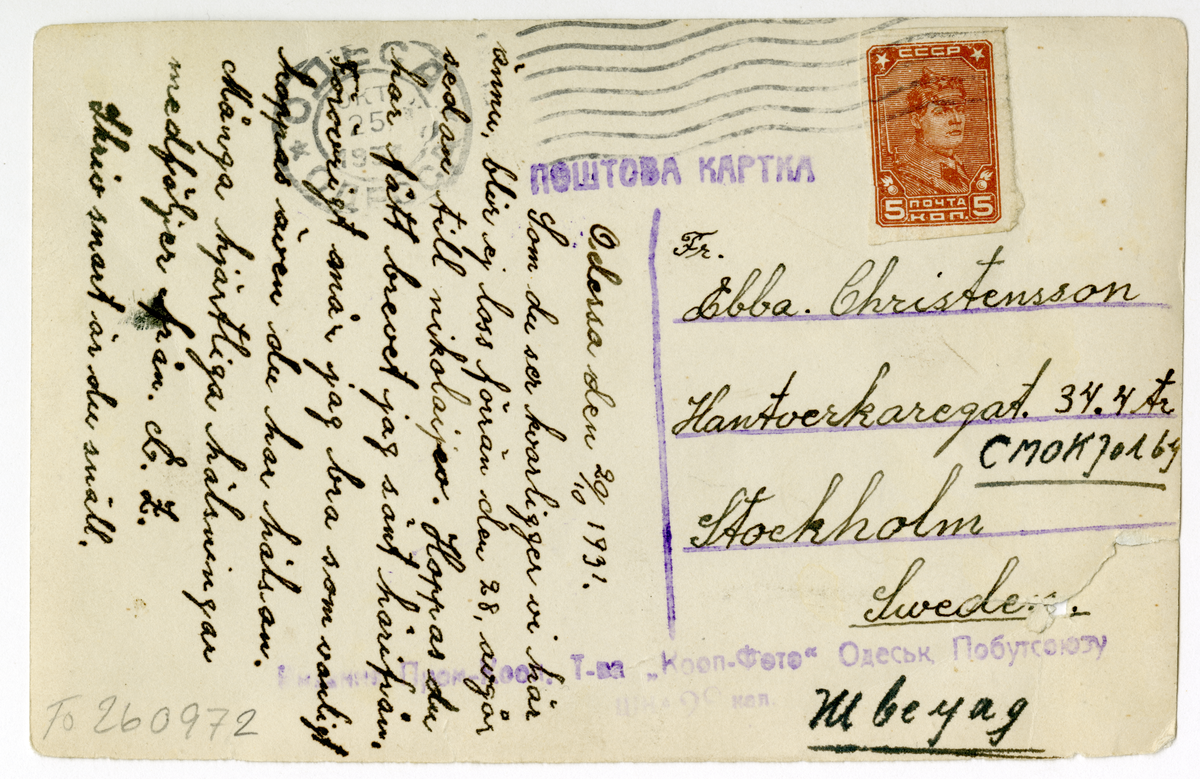 Odessa den 20/10 1931.
Som du ser kvarligger vi här
ännu, blir ej loss förrän den 28, avgår
sedan till nikolaijev. Hoppas du
har fått brevet jag sänt härifrån.
För övrigt mår jag bra som vanligt
hoppas även du har hälsan.
Många hjärtliga hälsningar
medföljer från. E. Z.
Skriv snart är du snäll.
ОДЕСА
25
ОДЕССА
ПОШТОВА КАРТКА
СССР
5 ПОЧТА 5
КОП.
Fr.
Ebba. Christensson
Hantverkaregat. 34. 4 tr
СТОКГОЛЬМ
Stockholm
Sweden.
Т-ва „Кооп-Фото“ Одеськ. Побутсоюзу
коп.
Швеция
To 260972